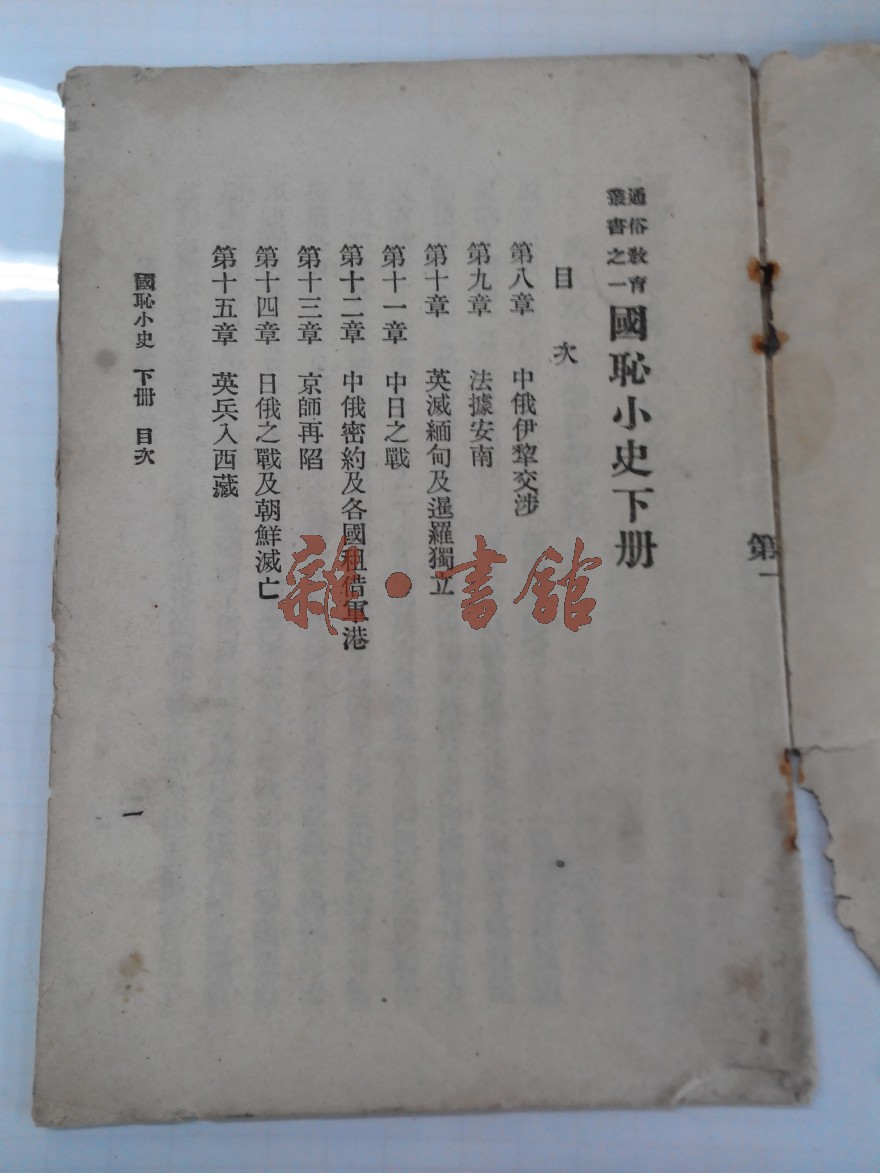 通俗教育
叢書之一
國恥小史下册
目次
第八章 中俄伊犂交涉
第九章 法據安南
第十章 英滅緬甸及暹羅獨立
第十一章 中日之戰
第十二章 中俄密約及各國租借軍港
第十三章 京師再陷
第十四章 日俄之戰及朝鮮滅亡
第十五章 英兵入西藏
國恥小史 下册 目次
一
第一
雜·書館